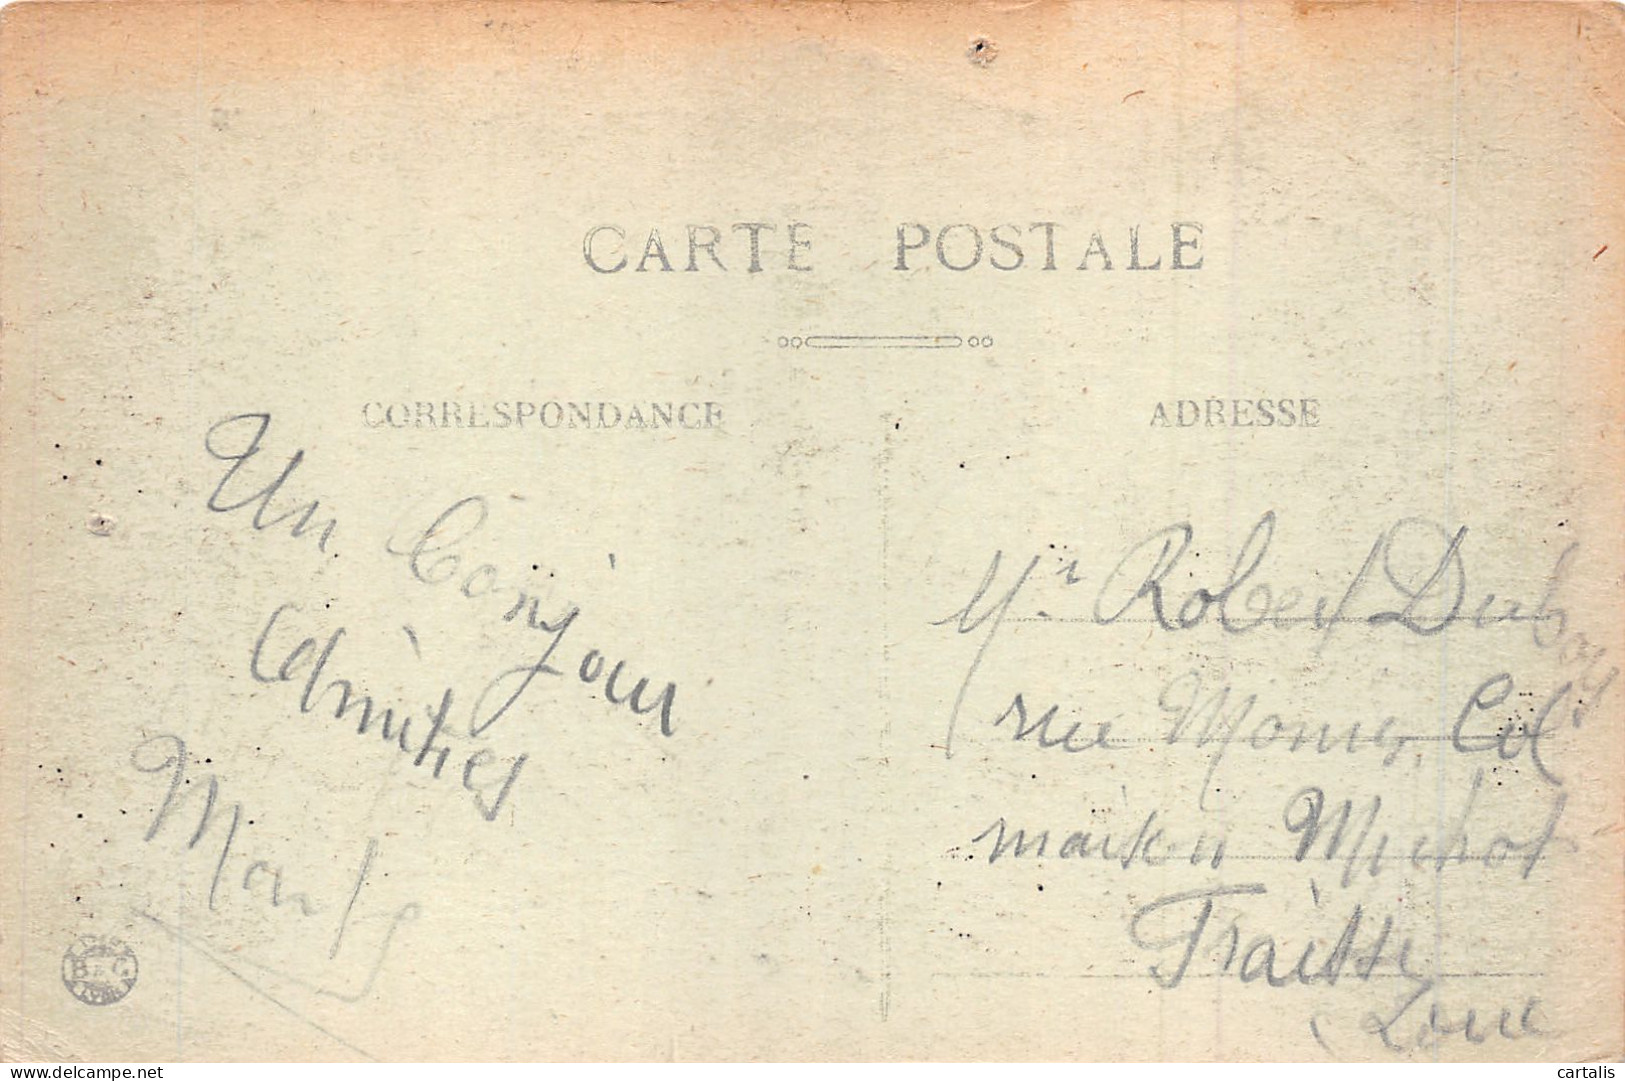 CARTE POSTALE
CORRESPONDANCE
ADRESSE
Un Bonjour
d'Amitiés
Mr. Robert Dubouy
rue
maison Michot
Fraisse
Loire
B & C
delcampe.net
cartalis